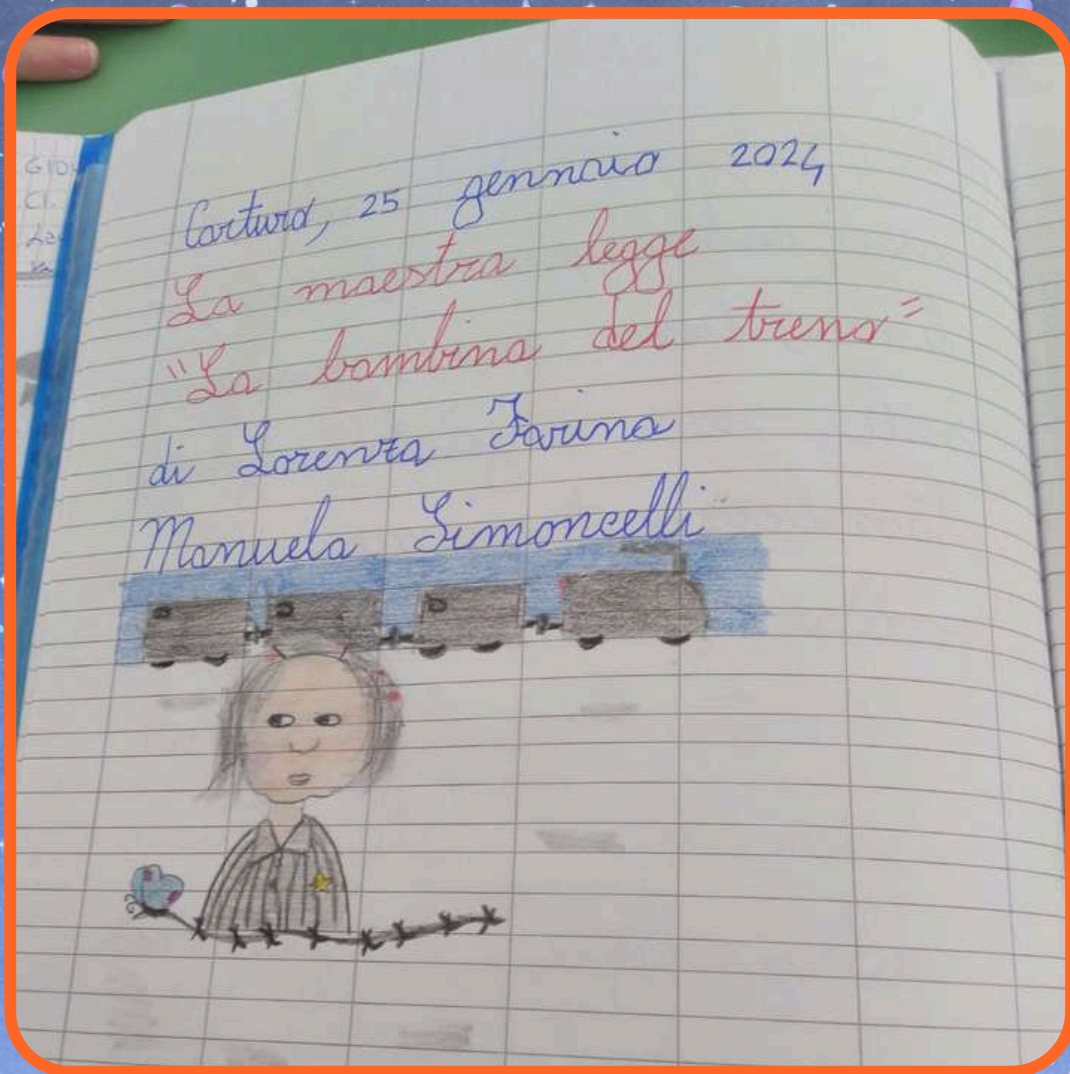 Cartura, 25 gennaio 2024
La maestra legge
"La bambina del treno"
di Lorenza Farina
Manuela Simoncelli
GIO
Cl.